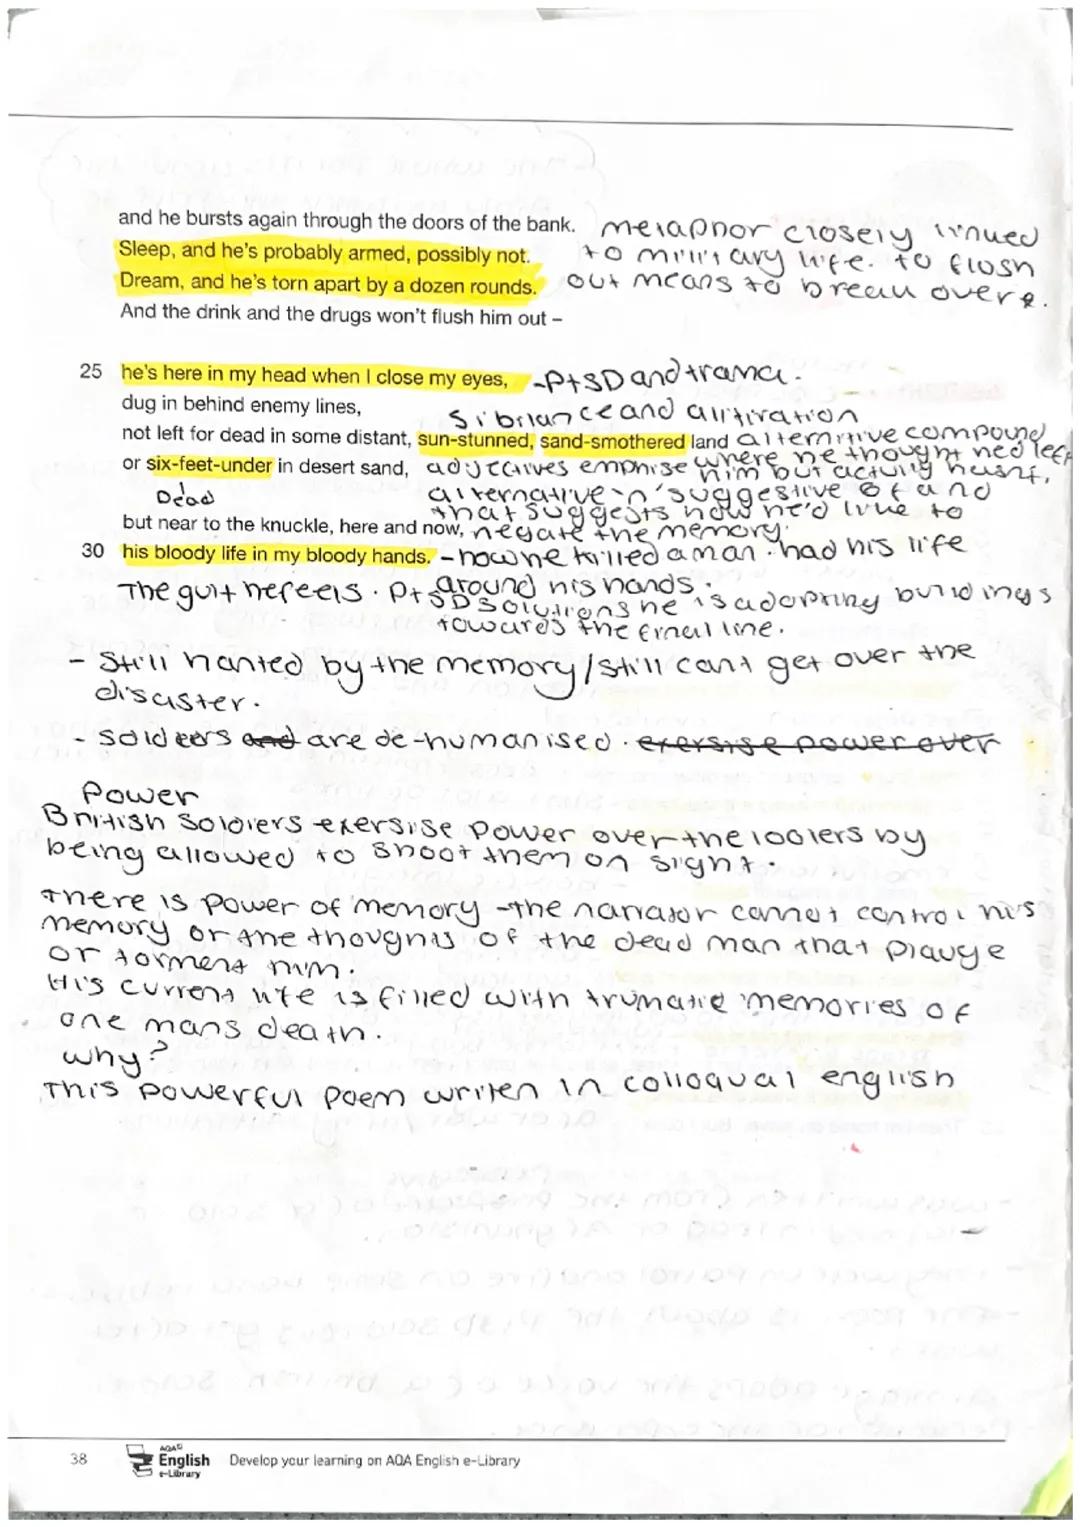 and he bursts again through the doors of the bank. metaphor closely linked
Sleep, and he's probably armed, possibly not. to military life. to flosh
Dream, and he's torn apart by a dozen rounds. out means to break overe.
And the drink and the drugs won't flush him out –
25 he's here in my head when I close my eyes, -PtSD and trama.
dug in behind enemy lines,
Sibilance and alitiration
not left for dead in some distant, sun-stunned, sand-smothered land alternitive compound
or six-feet-under in desert sand, adjectives emphise where he thought hed left
him but actuily hasnt.
Dead alternative in suggestive of and
that suggests how he'd like to
but near to the knuckle, here and now, negate the memory.
30 his bloody life in my bloody hands. - how he killed a man. had his life
around his hands.
The guit hefeels. PtSD solutions he is adopting buildings
towards the final line.
- Still hanted by the memory/still cant get over the
disaster.
- Soldeers and are de-humanised. exersise power over
Power
British Soldiers exersise power over the looters by
being allowed to shoot them on sight.
There is power of memory - the narrator cannot control his
memory or the thoughts of the dead man that plauge
or torment him.
His current life is filled with trumatic memories of
one mans death.
why?
This powerful poem writen in colloqual english
38 AQA English e-Library Develop your learning on AQA English e-Library